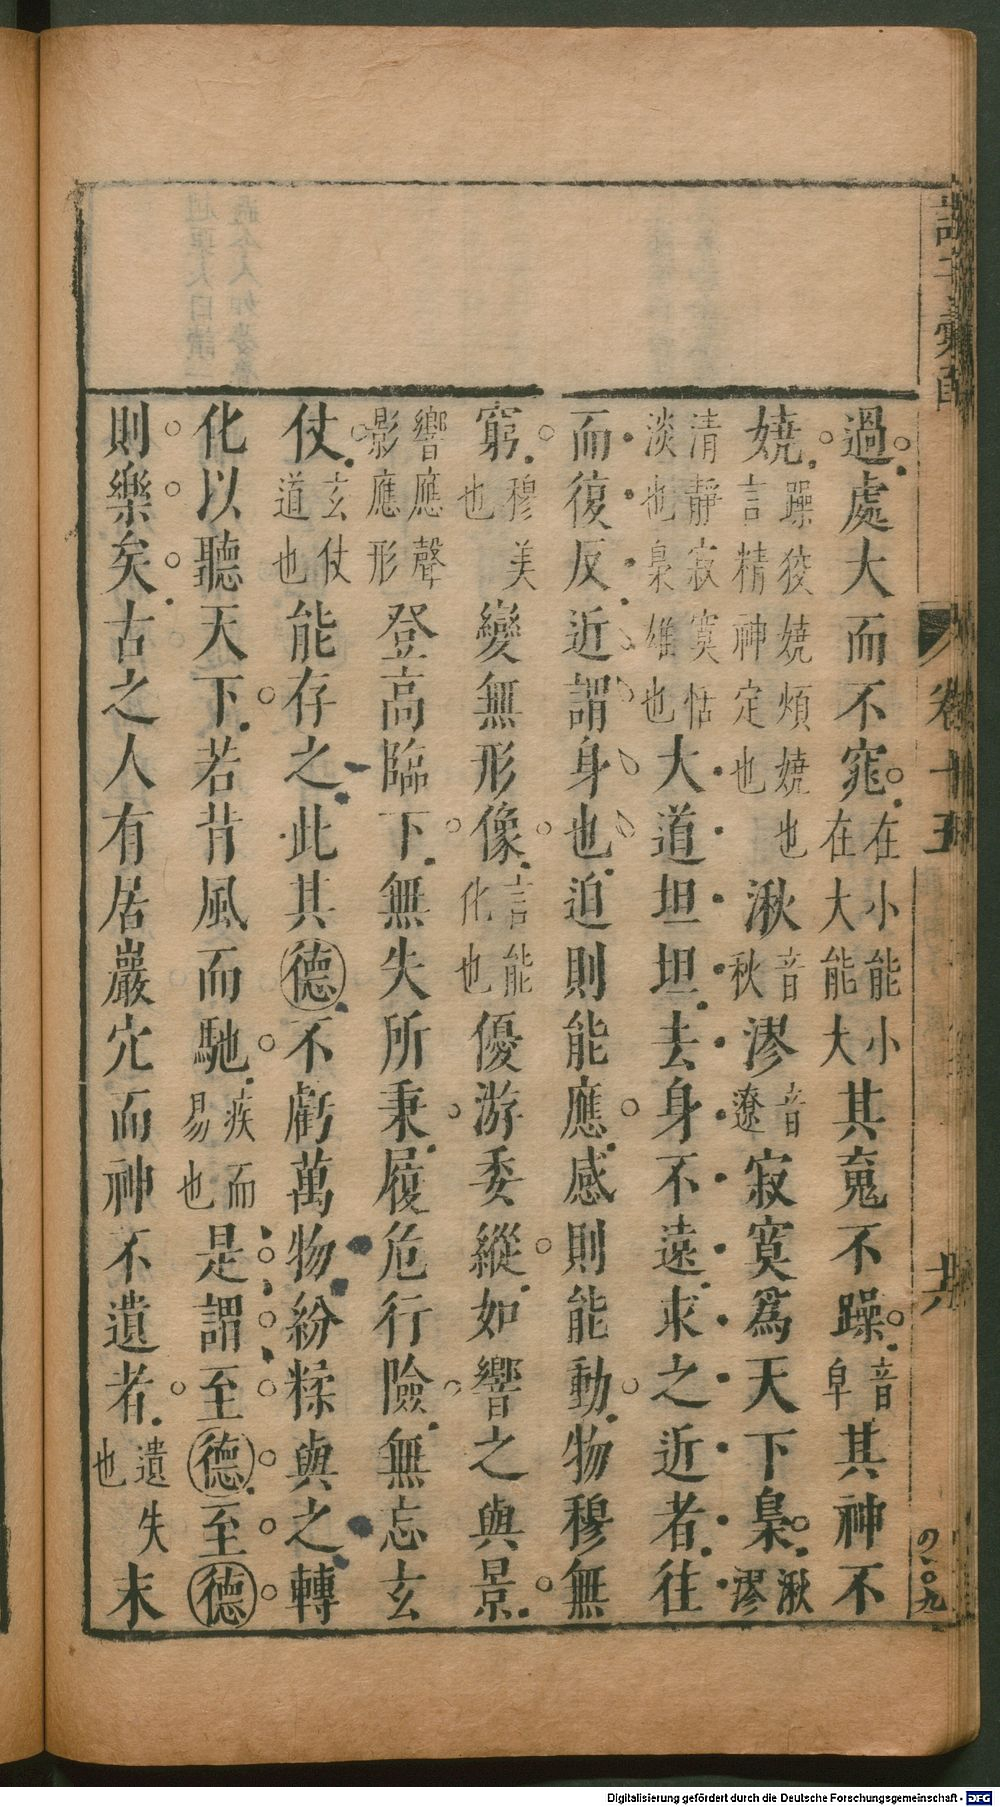 過處大而不窕在小能小在大能大其䰟不躁音阜其神不
嬈躁狡嬈煩嬈也言精神定也湫音秋漻音遼寂寞爲天下梟湫漻
清靜寂寞恬淡也梟雄也大道坦坦去身不遠求之近者往
而復反近謂身也迫則能應感則能動物穆無
窮穆美也變無形像言能化也優游委縱如響之與景
響應聲影應形登高臨下無失所秉履危行險無忘玄
仗玄仗道也能存之此其德不虧萬物紛糅與之轉
化以聽天下若背風而馳疾而易也是謂至德至德
則樂矣古之人有居巖穴而神不遺者遺失也末
卷十五
四〇九
Digitalisierung gefördert durch die Deutsche Forschungsgemeinschaft - DFG